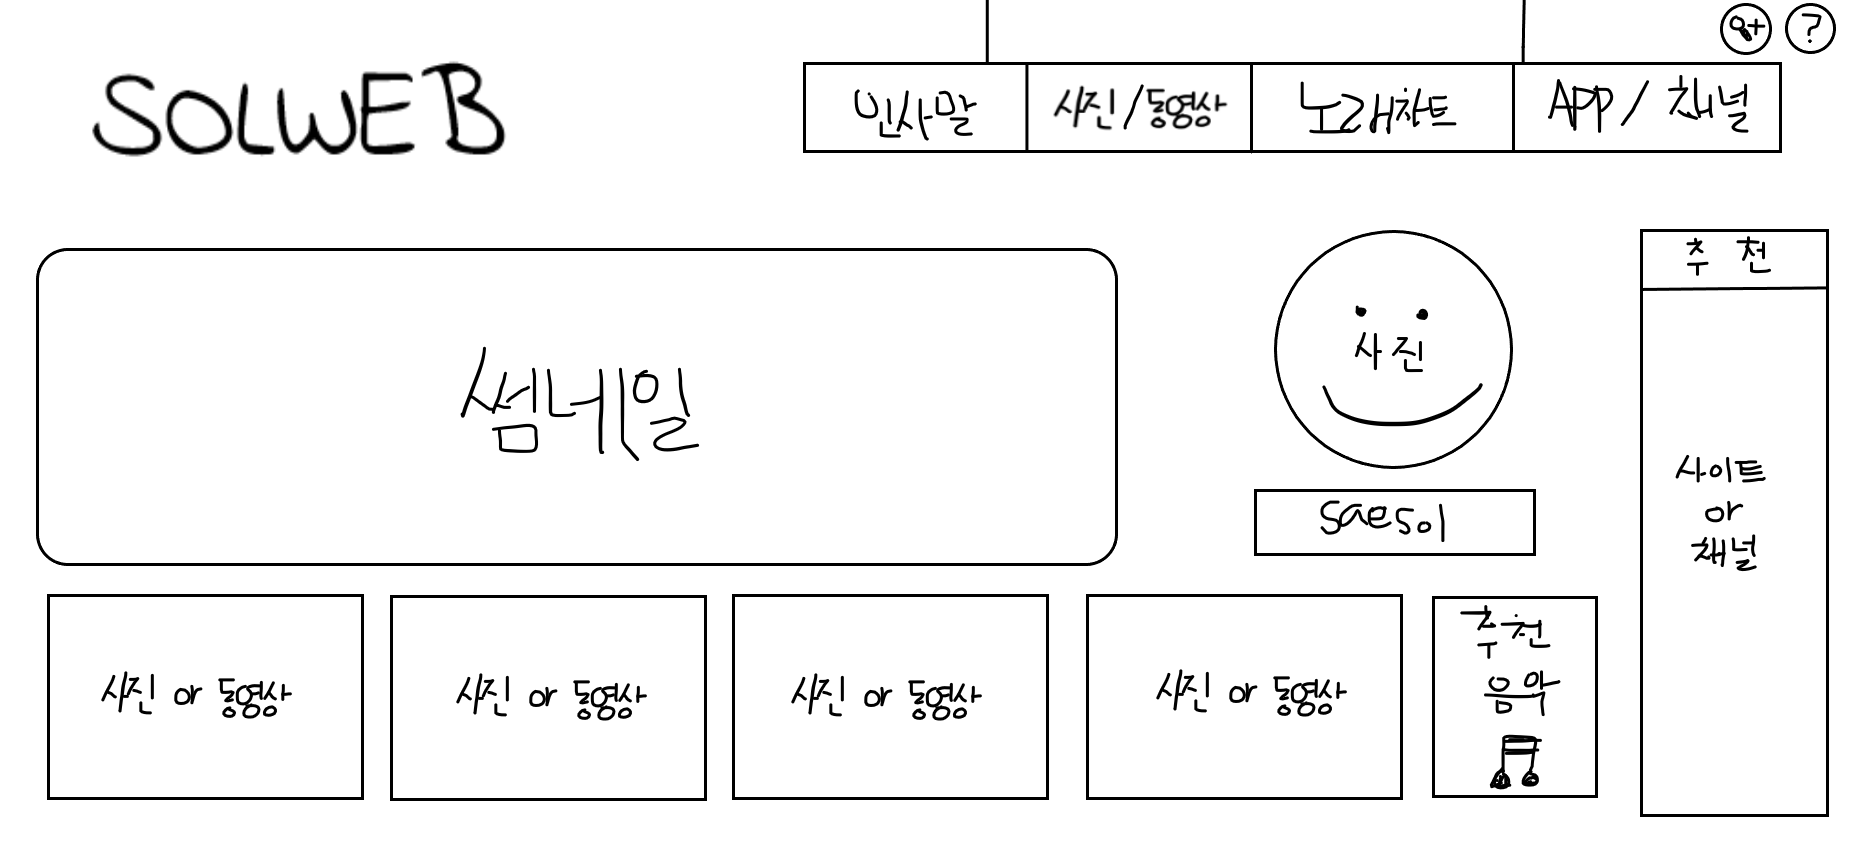 ?
SOLWEB
인사말
사진/동영상
노래차트
APP/채널
썸네일
사진
saesol
추천
사이트
or
채널
사진 or 동영상
사진 or 동영상
사진 or 동영상
사진 or 동영상
추천
음악